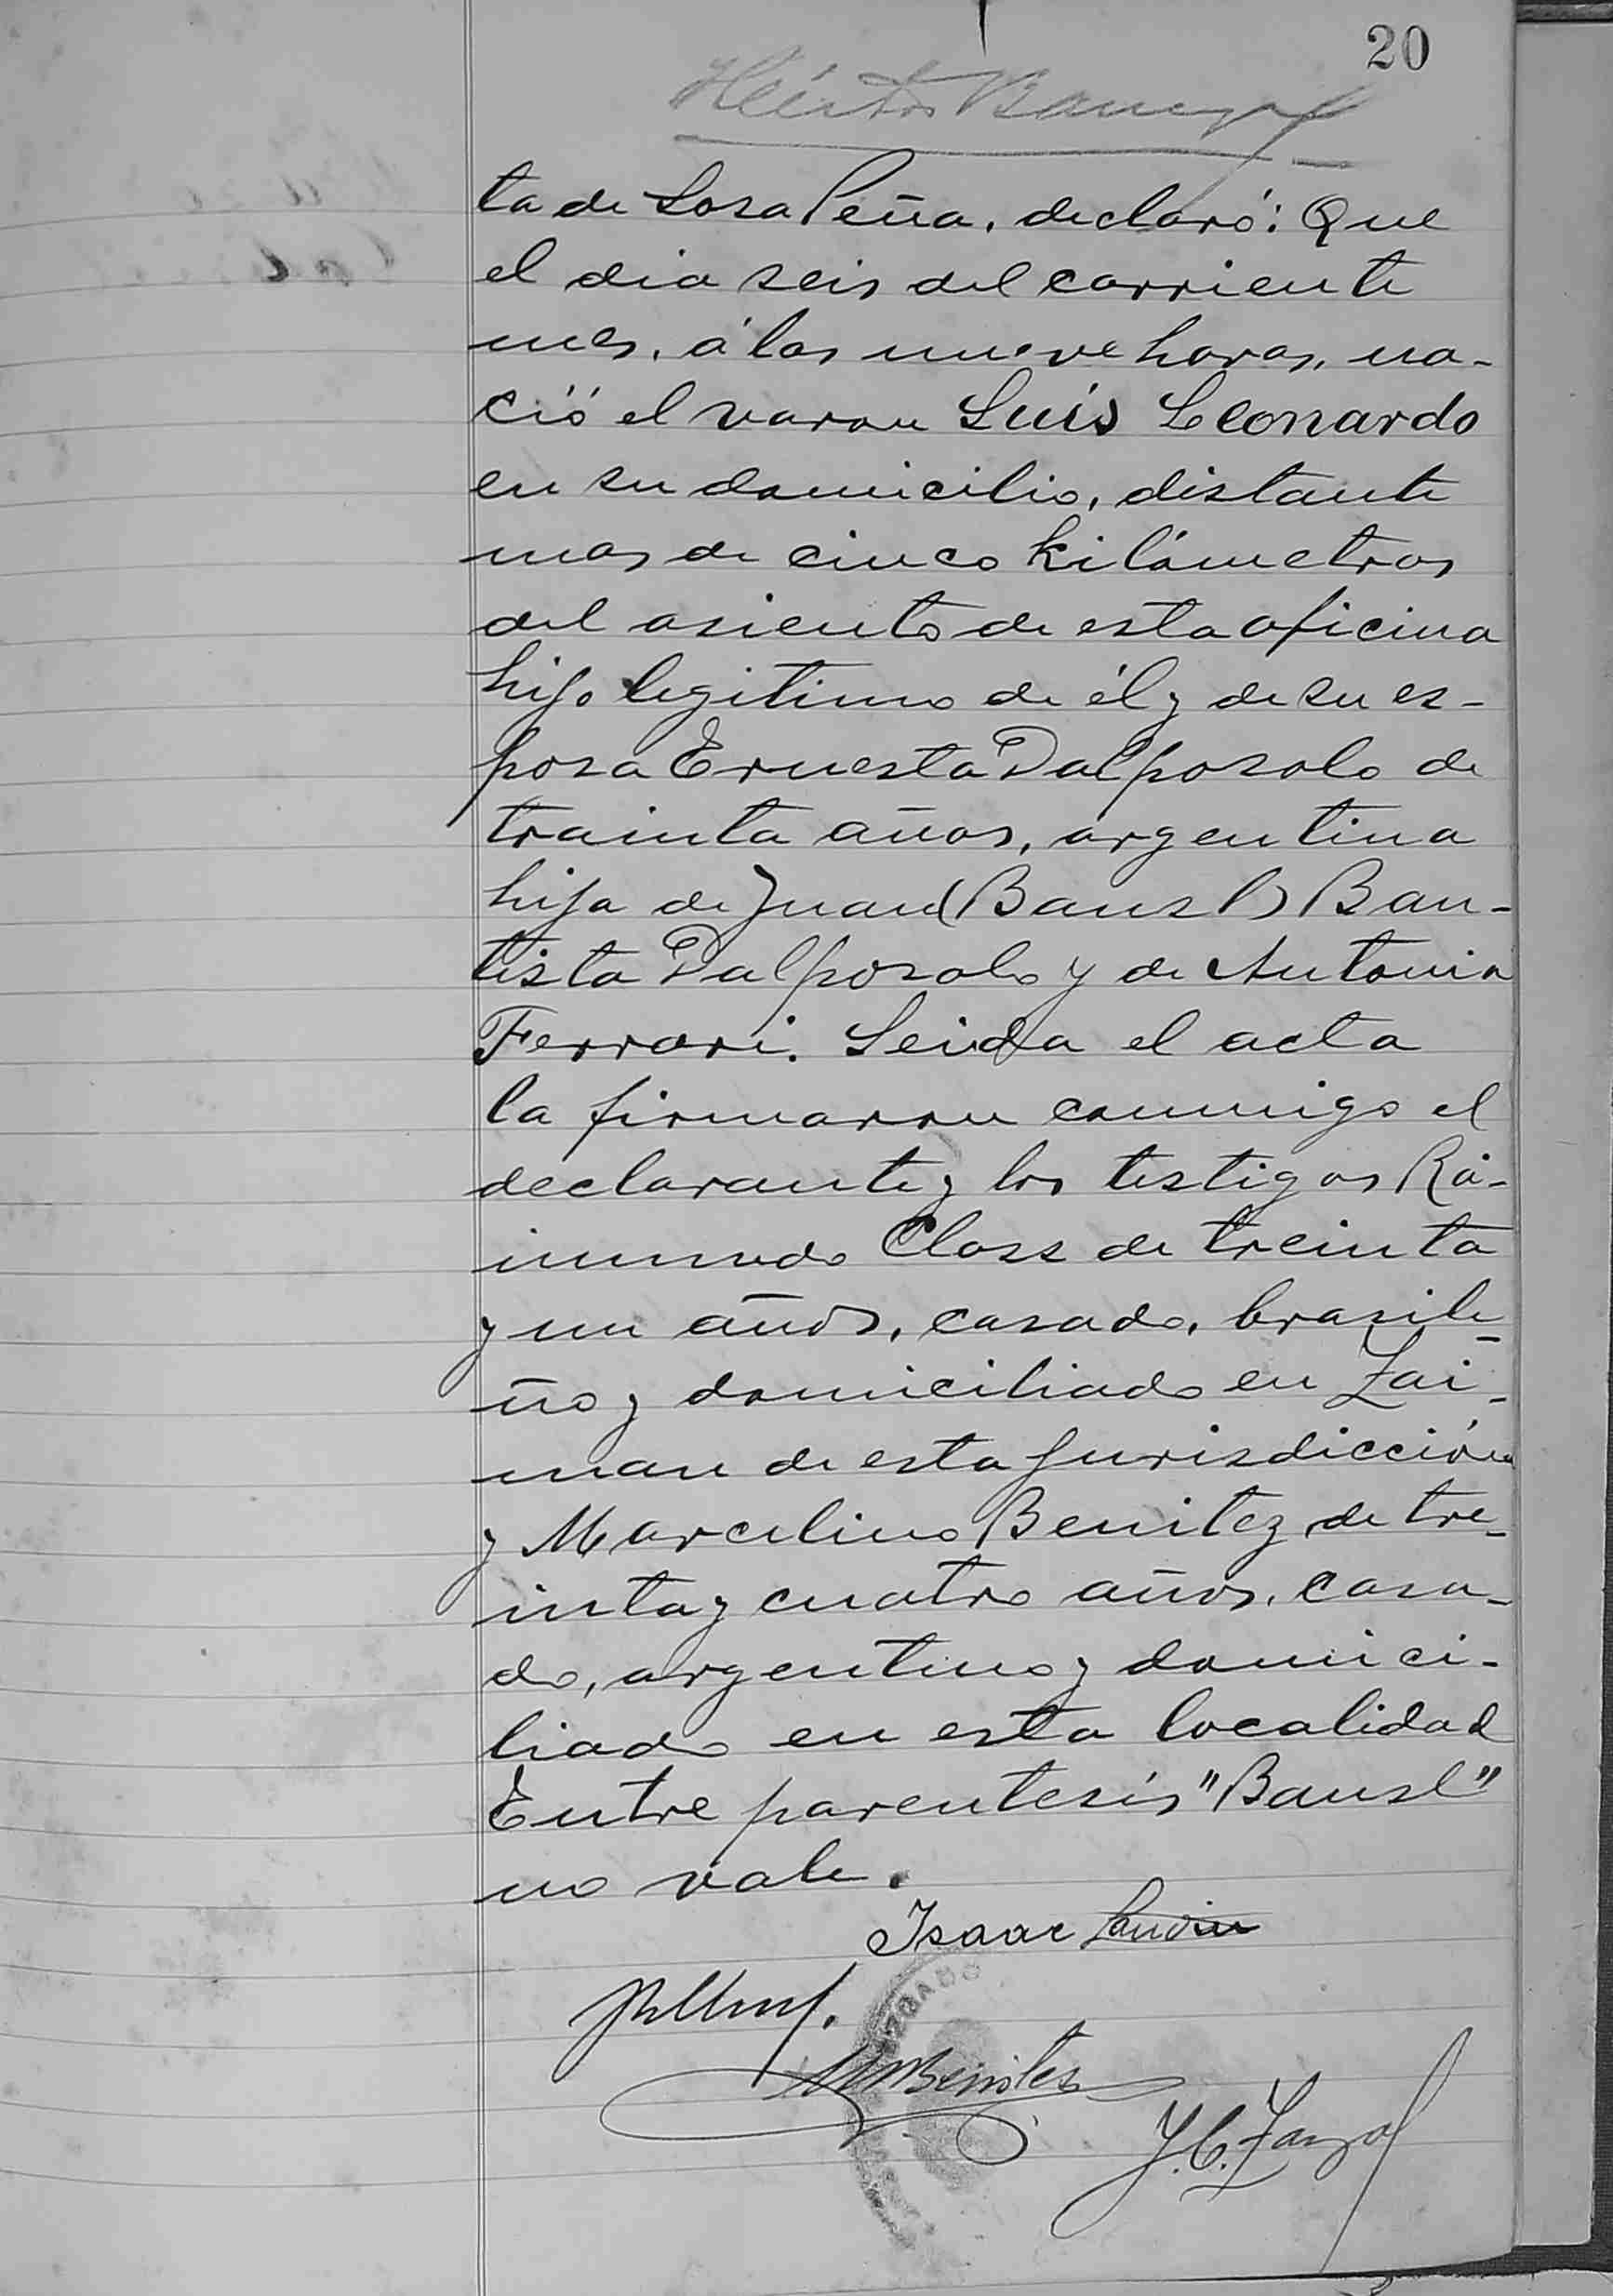 20
Héctor
ta de Sosa Peña, declaró: Que
el dia seis del corriente
mes, á las nueve horas, na-
ció el varon Luís Leonardo
en su domicilio, distante
mas de cinco kilómetros
del asiento de esta oficina
hijo legitimo de él y de su es-
posa Ernesta Dalposolo de
trainta años, argentina
hija de Juan (Bausl) Bau-
tista Dalposolo y de Antonia
Ferrari. Leida el acta
la firmaron conmigo el
declarante y los testigos Rá-
imundo Class de treinta
y un años, casado, brasile-
ño y domiciliado en Zai-
man de esta jurisdicción
y Marcelino Benitez de tre-
inta y cuatro años, casa-
do, argentino y domici-
liado en esta localidad
Entre parentesís "Bausl"
no vale.
Isaac
JUZGADO
M Benites
J. C.